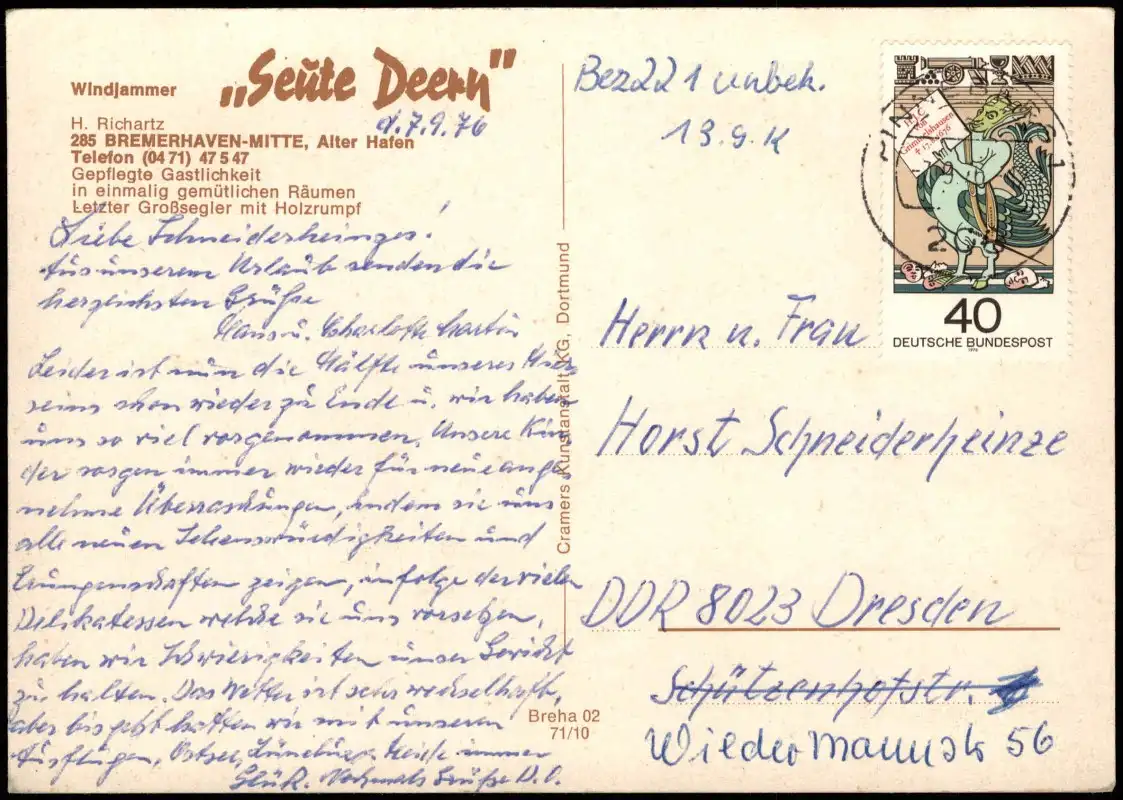 Windjammer „Seute Deern"
d. 7.9.76
H. Richartz
285 BREMERHAVEN-MITTE, Alter Hafen
Telefon (04 71) 4 75 47
Gepflegte Gastlichkeit
in einmalig gemütlichen Räumen
Letzter Großsegler mit Holzrumpf
Liebe Schneiderheinzes!
Aus unserem Urlaub senden die
herzlichsten Grüße
Hans u. Charlotte
Leider ist nun die Hälfte unseres Hier
seins schon wieder zu Ende u. wir haben
uns so viel vorgenommen. Unsere Kin
der sorgen immer wieder für neue ange
nehme Überraschungen, indem sie uns
alle neuen Sehenswürdigkeiten und
Errungenschaften zeigen, infolge der vielen
Delikatessen welche sie uns vorsetzen,
haben wir Schwierigkeiten unser Gewicht
zu halten. Das Wetter ist sehr wechselhaft,
aber bis jetzt hatten wir mit unseren
Ausflügen, Ostsee, Lüneburger Heide immer
Glück. Nochmals Grüße D. O.
Cramers Kunstanstalt KG. Dortmund
Breha 02
71/10
Bez 22 1 unbek.
13.9. K
H.J.C.
von
Grimmelshausen
† 17.8.1676
40
DEUTSCHE BUNDESPOST
1976
Herrn u. Frau
Horst Schneiderheinze
DDR 8023 Dresden
Schützenhofstr.
Wildermannstr 56